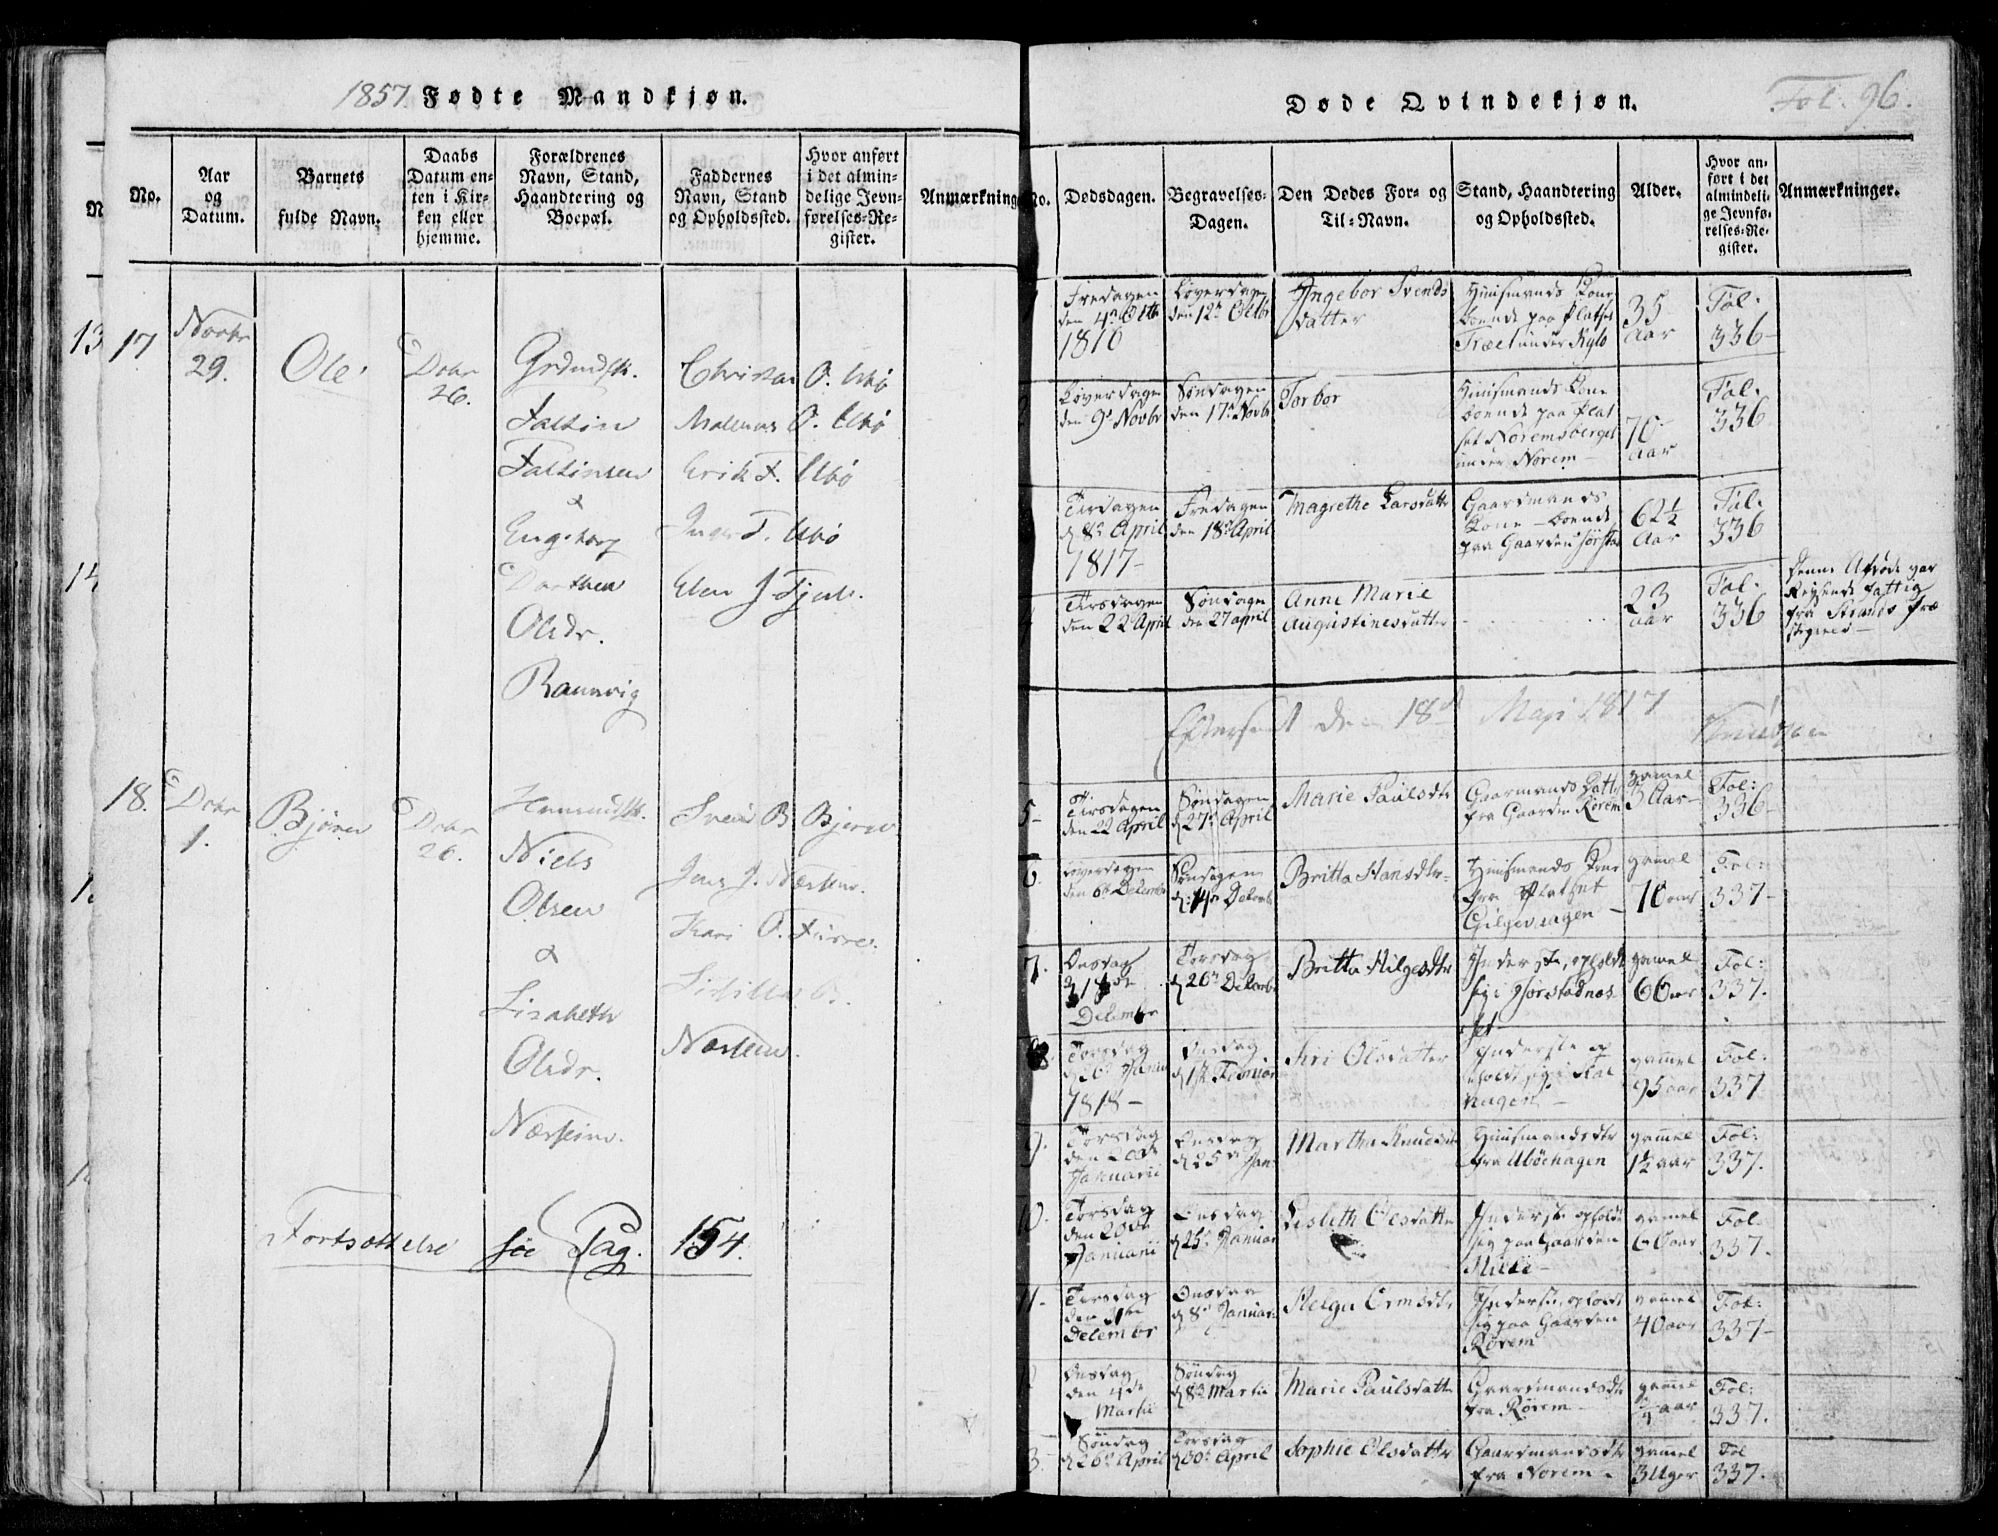 1857. Fødte Mandkjøn.
No.
Aar
og
Datum.
Barnets
fulde Navn.
Daabs
Datum en-
ten i Kir-
ken eller
hjemme.
Forældrenes
Navn, Stand,
Haandtering og
Boepæl.
Faddernes
Navn, Stand
og Opholdssted.
Hvor anført
i det almin-
delige Jevn-
førelses-Re-
gister.
Anmærkning
17
Novbr
29.
Ole
Dcbr
26.
Grdmdsk.
Faltin
Faltinsen
&
Engeborg
Dorthea
Olsdr.
Rannvig
Christian O. Ubø
Malenas O. Ubø
Erik F. Ubø
Inger F. Ubø
Elen J. Fjeld.
18.
Dcbr
1.
Bjørn
Dcbr
26.
Niels
Olsen
&
Lisabeth
Olsdr.
Næsheim.
Svein B. Bjerø
Jens J. Næsheim.
Kari O.
Næsheim.
Fortsættelse see Pag. 154.
Døde Qvindekjøn.
Fol. 96.
No.
Dødsdagen.
Begravelses-
Dagen.
Den Dødes For- og
Til-Navn.
Stand, Haandtering
og Opholdssted.
Alder.
Hvor an-
ført i det
almindeli-
ge Jevnfø-
relses-Re-
gister.
Anmærkninger.
Fredagen
den 4de Octb
1816
Løverdagen
den 12te Octbr
Ingebor Svends
datter
Huusmands Kone
boende paa Pladset
Træet under
35
Aar
Fol:
336-
Løverdagen
den 9de Novbr
Søndagen
den 17de Novbr
Torbor
Huusmands Kone
boende paa Plad
set Noremsberget
under Norem-
70
Aar
Fol:
336
Tirsdagen
d 8de April
1817-
Fredagen
den 18de April
Magrethe Larsdatter
Gaardmands
Kone - boende
paa Gaarden
62½
Aar
Fol:
336
Tirsdagen
den 22de April
Søndagen
den 27 april
Anne Marie
Augustinesdatter
23
aar
Fol:
336
Denne Afdøde var
Reisende Fattig
fra Strands Præ
stegield-
Efterseet den 18de Maji 1817
5-
Tirsdagen
den 22 April
Søndagen
d 27de April
Marie Paulsdtr
Gaardmands Datter
fra Gaarden Rørem
gamel
Aar-
Fol:
336-
6.
Løverdagen
den 6te Decembr
Søndagen
d: 14de Decembr
Britta Hansdtr-
Huusmands Kone
fra Pladset
Gilgevaagen-
gamel
70 aar
Fol:
337-
7.
Onsdag
Decembr
Torsdag
d 26de Decembr
Britta Helgesdtr
Inderste, opholdt
sig i Hjorstadnes
set
gamel
66 aar
Fol:
337.
8.
Torsdag
1818-
Onsdag
Februar
Siri Olsdatter
Inderste op
holdt sig i
gammel
95 aar
Fol:
337.
9.
Torsdag
Januarii
Onsdag
d 25de Jan:
Martha Knudsdtr
Huusmandsdtr
fra Ubøehagen
gamel
1½ aar
Fol:
337.
10.
Torsdag
den 20de
Januarii
Onsdag
d 25de Januar
Lisbeth Olsdatter
Inderste opholdt
sig paa Gaarden
gamel
60 aar
Fol:
337.
11-
Tirsdag
den
Decembr
Onsdag
d 8de Januar:
Helga Ormsdtr
Inderste, opholdt
sig paa Gaarden
Rørem
gamel
40 aar
Fol:
337-
Onsdag
den 4de
Martii
Søndag
d 8de Martii
Marie Paulsdatter
Gaardmandsdtr
fra Rørem-
gamel
¾ aar
Fol:
337.
Søndag
d 26de April
Torsdag
d 30de April
Sophie Olsdatter
Gaardmandsdtr
fra Norem-
gamel
3 Uger
Fol
337.